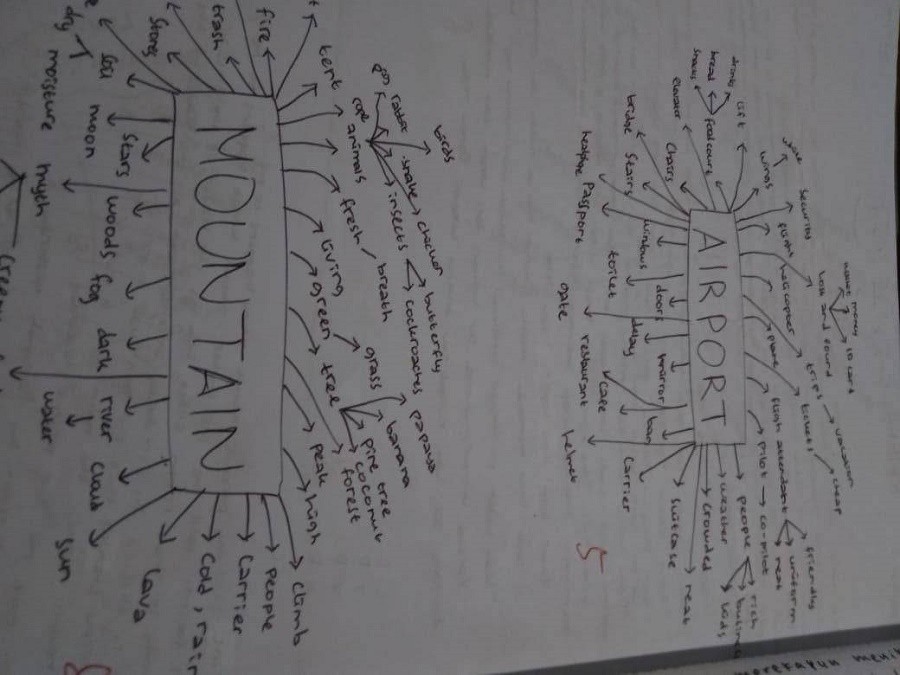 MOUNTAIN
fire
trash
stones
dry
moissure
moon
stars
myth
woods
fog
dark
river
water
cloud
sun
lava
Cold, rain
Carrier
people
climb
high
peak
forest
coconut
pine tree
tree
grass
banana
papaya
green
living
fresh breath
animals
rabbit
snake
birds
insects
butterfly
cockroaches
tent
AIRPORT
drinks
bread
snacks
food court
lift
elevator
chairs
bridge
stairs
Passport
windows
toilet
doors
delay
gate
restaurant
cafe
helmet
Carrier
suitcase
neat
crowded
weather
people
rich
kids
pilot
co-pilot
flight attendant
friendly
uniform
neat
plane
helicopter
flight
wings
security
lost and found
money
ticket
trips
vacation
5